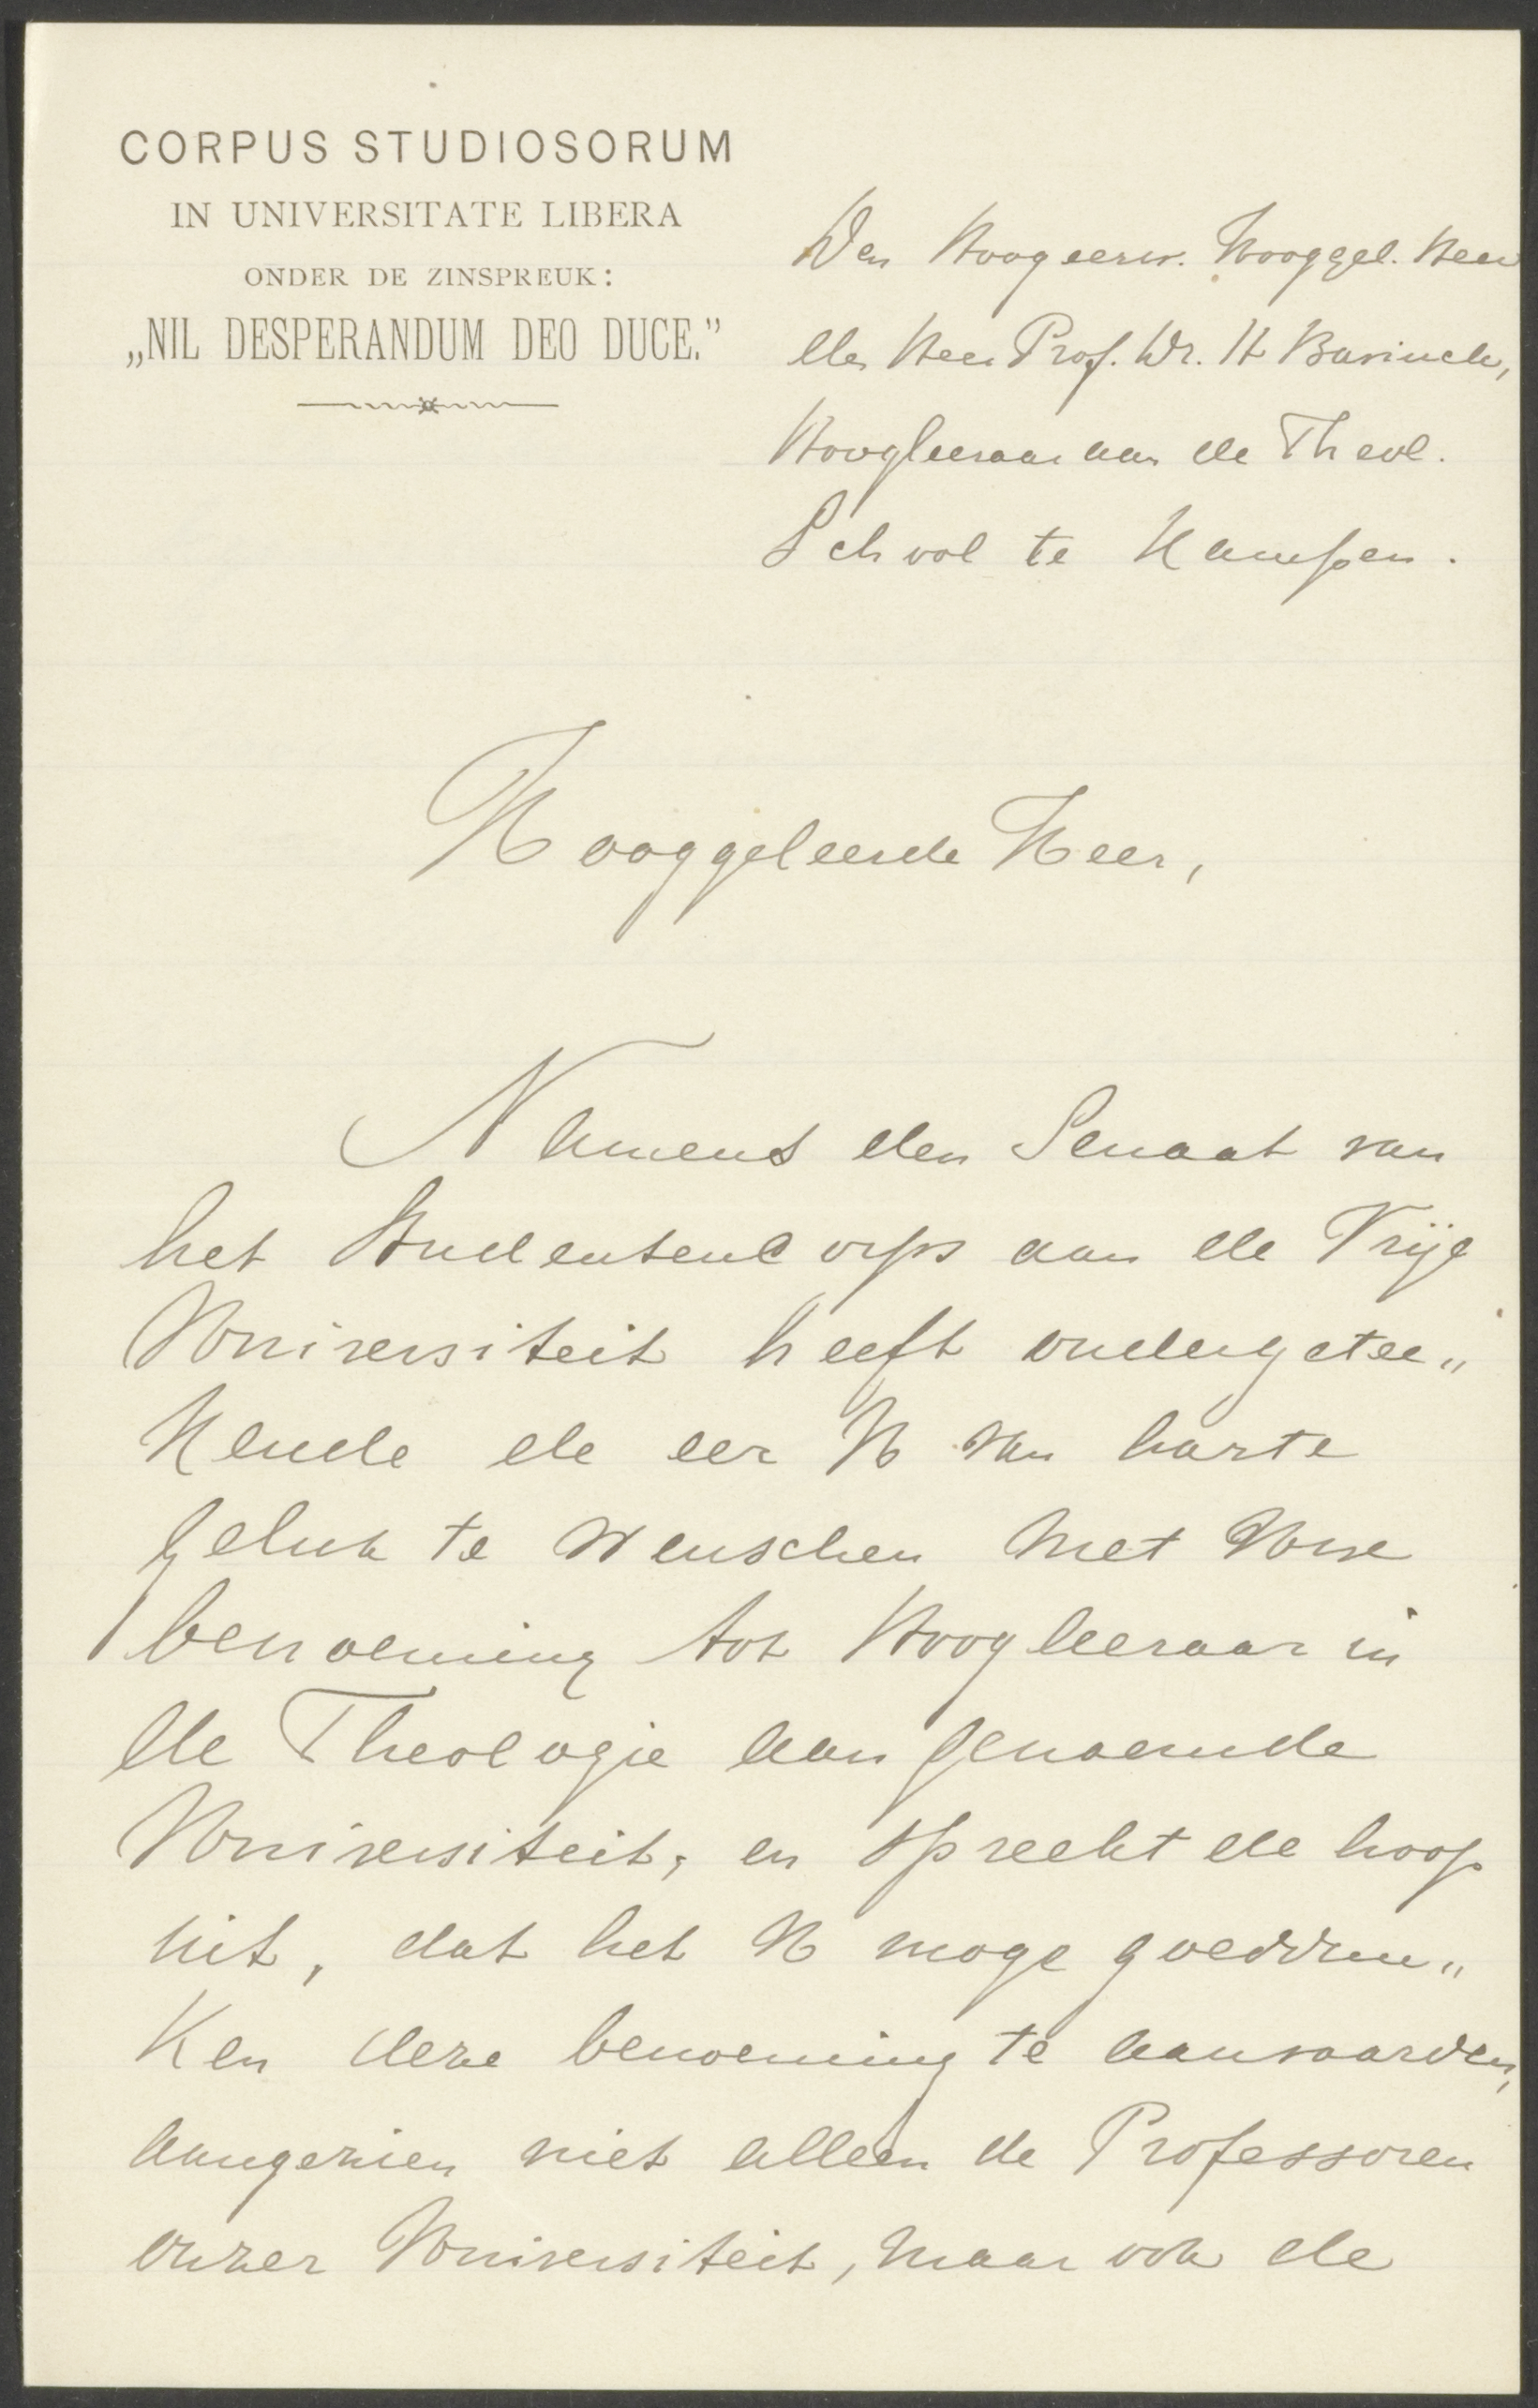 CORPUS STUDIOSORUM
IN UNIVERSITATE LIBERA
ONDER DE ZINSPREUK:
„NIL DESPERANDUM DEO DUCE.”
Den Hoogeerw. Hooggel. Heer
den Heer Prof. Dr. H Bavinck,
Hoogleeraar aan de Theol.
School te Kampen.
Hooggeleerde Heer,
Namens den Senaat van
het Studentencorps aan de Vrije
Universiteit heeft ondergetee„
kende de eer U van harte
geluk te wenschen met Uwe
benoeming tot Hoogleeraar in
de Theologie aan genoemde
Universiteit, en spreekt de hoop
uit, dat het U moge goeddun„
ken deze benoeming te aanvaarden,
aangezien niet alleen de Professoren
onzer Universiteit, maar ook de